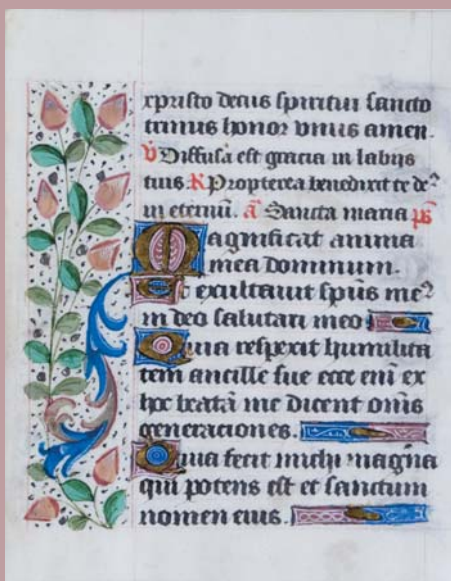 xpristo decus spiritui sancto
trinus honor vnus amen.
V Diffusa est gracia in labijs
tuis. R Propterea benedixit te deꝰ
in eternū. ā Sancta maria ps
Magnificat anima
mea dominum.
Et exultauit spūs meꝰ
in deo salutari meo
Quia respexit humilita
tem ancille sue ecce eni ex
hoc beatā me dicent om̄s
generaciones.
Quia fecit michi magna
qui potens est et sanctum
nomen eius.